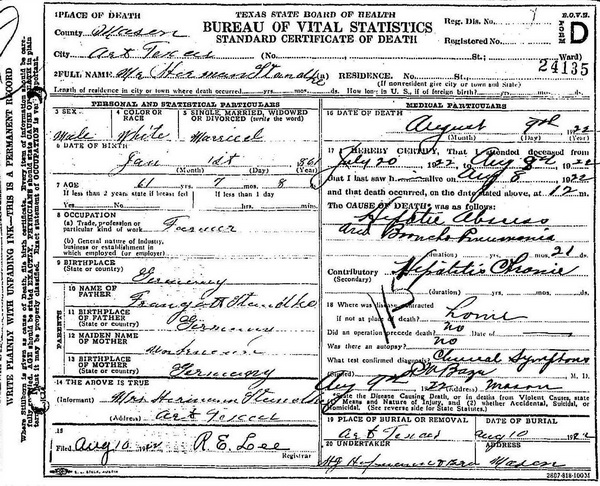 1 PLACE OF DEATH
TEXAS STATE BOARD OF HEALTH
BUREAU OF VITAL STATISTICS
STANDARD CERTIFICATE OF DEATH
Reg. Dis. No.
B.O.V.S.
Form D
County Mason
City Art Texas (No. St.; Ward)
Registered No.
24135
2 FULL NAME Mr Herman Standke
(If nonresident give city or town and State)
Length of residence in city or town where death occurred yrs. mos. ds. How long in U. S., if of foreign birth? yrs. mos. ds.
PERSONAL AND STATISTICAL PARTICULARS
3 SEX
Male
4 COLOR OR RACE
White
5 SINGLE, MARRIED, WIDOWED OR DIVORCED (write the word)
Married
6 DATE OF BIRTH
Jan 1st 1861
(Month) (Day) (Year)
7 AGE 61 yrs. 7 mos. 8 ds.
If less than 2 years state if breast fed
If less than 1 day
8 OCCUPATION
(a) Trade, profession or particular kind of work Farmer
(b) General nature of Industry, business or establishment in which employed (or employer)
9 BIRTHPLACE
(State or country) Germany
PARENTS
10 NAME OF FATHER Standke
11 BIRTHPLACE OF FATHER
(State or country) Germany
12 MAIDEN NAME OF MOTHER
13 BIRTHPLACE OF MOTHER
(State or country) Germany
14 THE ABOVE IS TRUE
(Informant) Mrs Herman Standke
(Address) Art Texas
15
Filed Aug 10 1922 R. E. Lee
Registrar
MEDICAL PARTICULARS
16 DATE OF DEATH
August 9th 1922
(Month) (Day) (Year)
17 I HEREBY CERTIFY, That I attended deceased from
July 20 1922 to Aug 8th 1922
that I last saw h alive on Aug 8 1922
and that death occurred, on the date stated above, at 12 m.
The CAUSE OF DEATH was as follows:
Hepatic Abscess
and Broncho Pneumonia
(duration) yrs. mos. 21 ds.
Contributory Hepatitis Chronic
(Secondary)
(duration) yrs. mos. ds.
18 Where was disease contracted
if not at place of death? home
Did an operation precede death? no
Was there an autopsy? no
What test confirmed diagnosis? Clinical Symptoms
M. D.
Aug 9th 1922 Mason
* State the Disease Causing Death, or in deaths from Violent Causes, state Means and Nature of Injury, and (2) whether Accidental, Suicidal, or Homicidal. (See reverse side for State Statutes.)
19 PLACE OF BURIAL OR REMOVAL
Art Texas
DATE OF BURIAL
Aug 10 1922
20 UNDERTAKER
ADDRESS
Mason
WRITE PLAINLY WITH UNFADING INK—THIS IS A PERMANENT RECORD